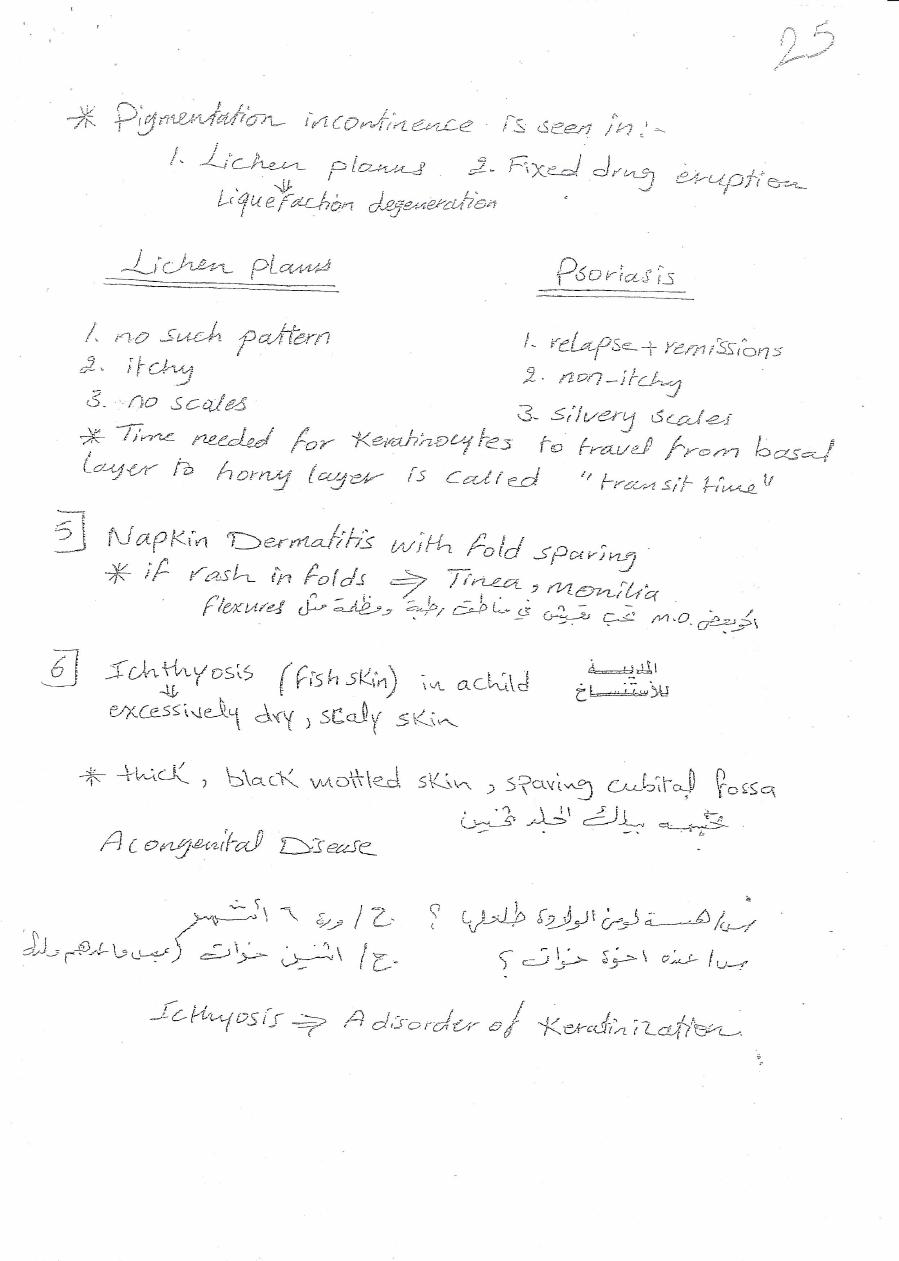 25
* Pigmentation incontinence is seen in:-
1. Lichen planus 2. Fixed drug eruption
⇓
Liquefaction degeneration
Lichen planus
Psoriasis
1. no such pattern
1. relapse + remissions
2. itchy
2. non-itchy
3. no scales
3. silvery scales
* Time needed for Keratinocytes to travel from basal
layer to horny layer is called "transit time"
5 Napkin Dermatitis with fold sparing
* if rash in folds ⇒ Tinea, monilia
M.O. تحب تعيش في مناطق رطبة ومظلمة مثل flexures
6 Ichthyosis (fish skin) in a child
المدينة
للأستنساخ
⇓
excessively dry, scaly skin
* thick, black mottled skin, sparing cubital fossa
الجلد ثخين
A congenital Disease
س/ هسة لو من الولادة طلعلها ؟ ج/ ورة ٦ أشهر
س/ عنده اخوة خوات ؟ ج/ اثنين خوات
Icthyosis ⇒ A disorder of Keratinization.